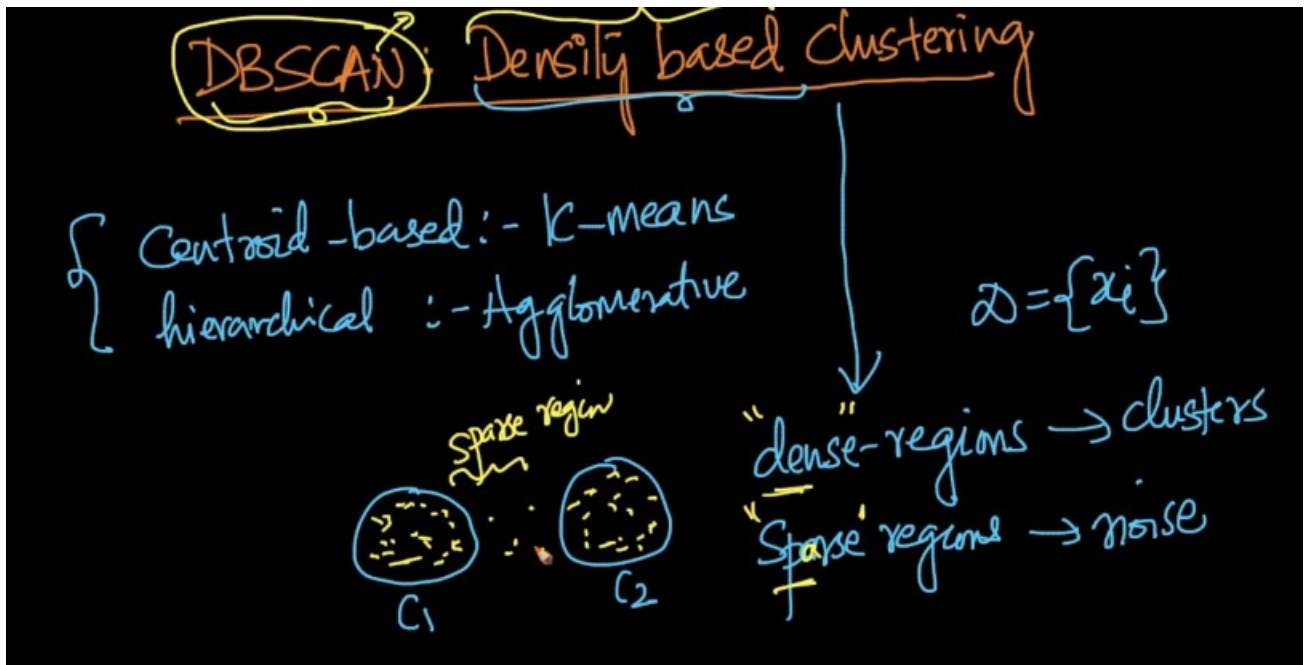 DBSCAN: Density based Clustering
Centroid-based:- K-means
hierarchical :- Agglomerative
D={xi}
sparse regin
"dense"-regions → clusters
"Sparse" regions → noise
C1
C2